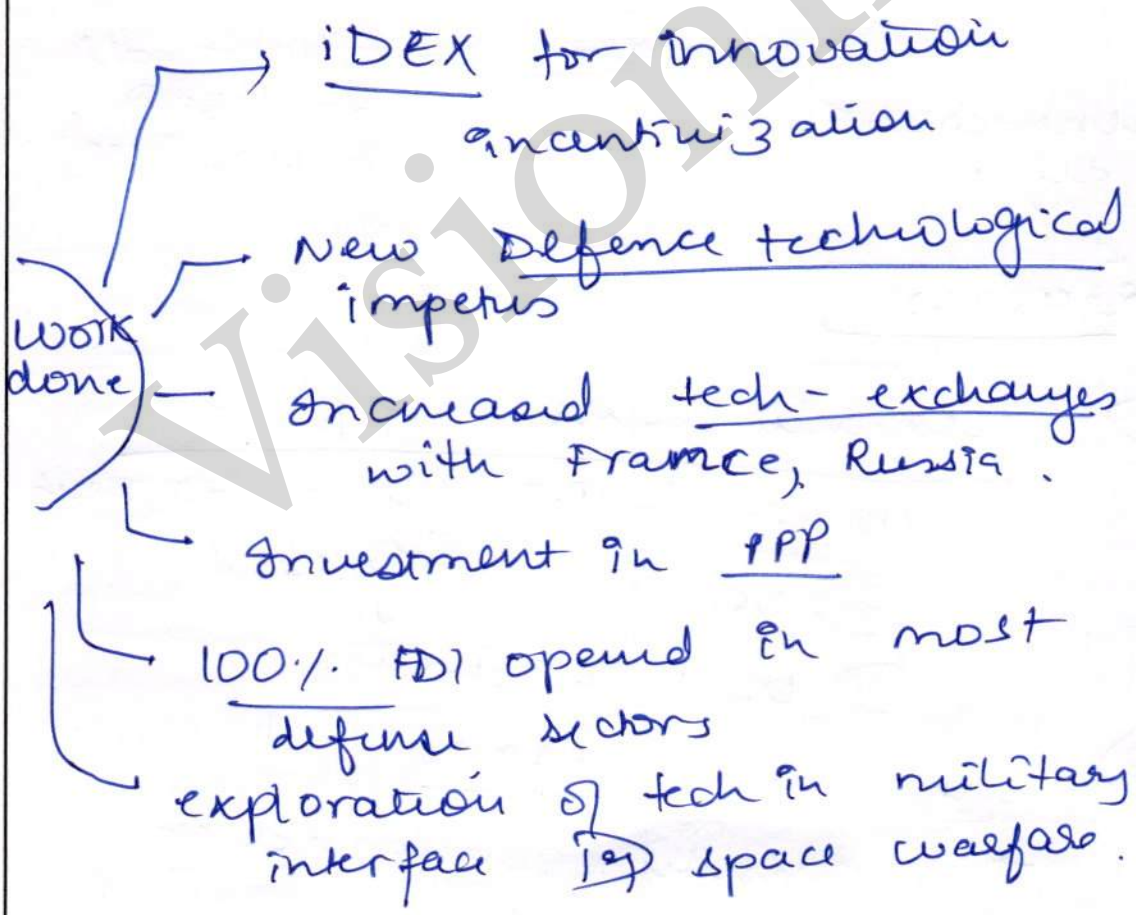 iDEX for innovation
incentivization
New Defence technological
impetus
Work
done
Increased tech-exchanges
with France, Russia.
Investment in PPP
100% FDI opened in most
defense sectors
exploration of tech in military
interface eg space warfare.
Vision